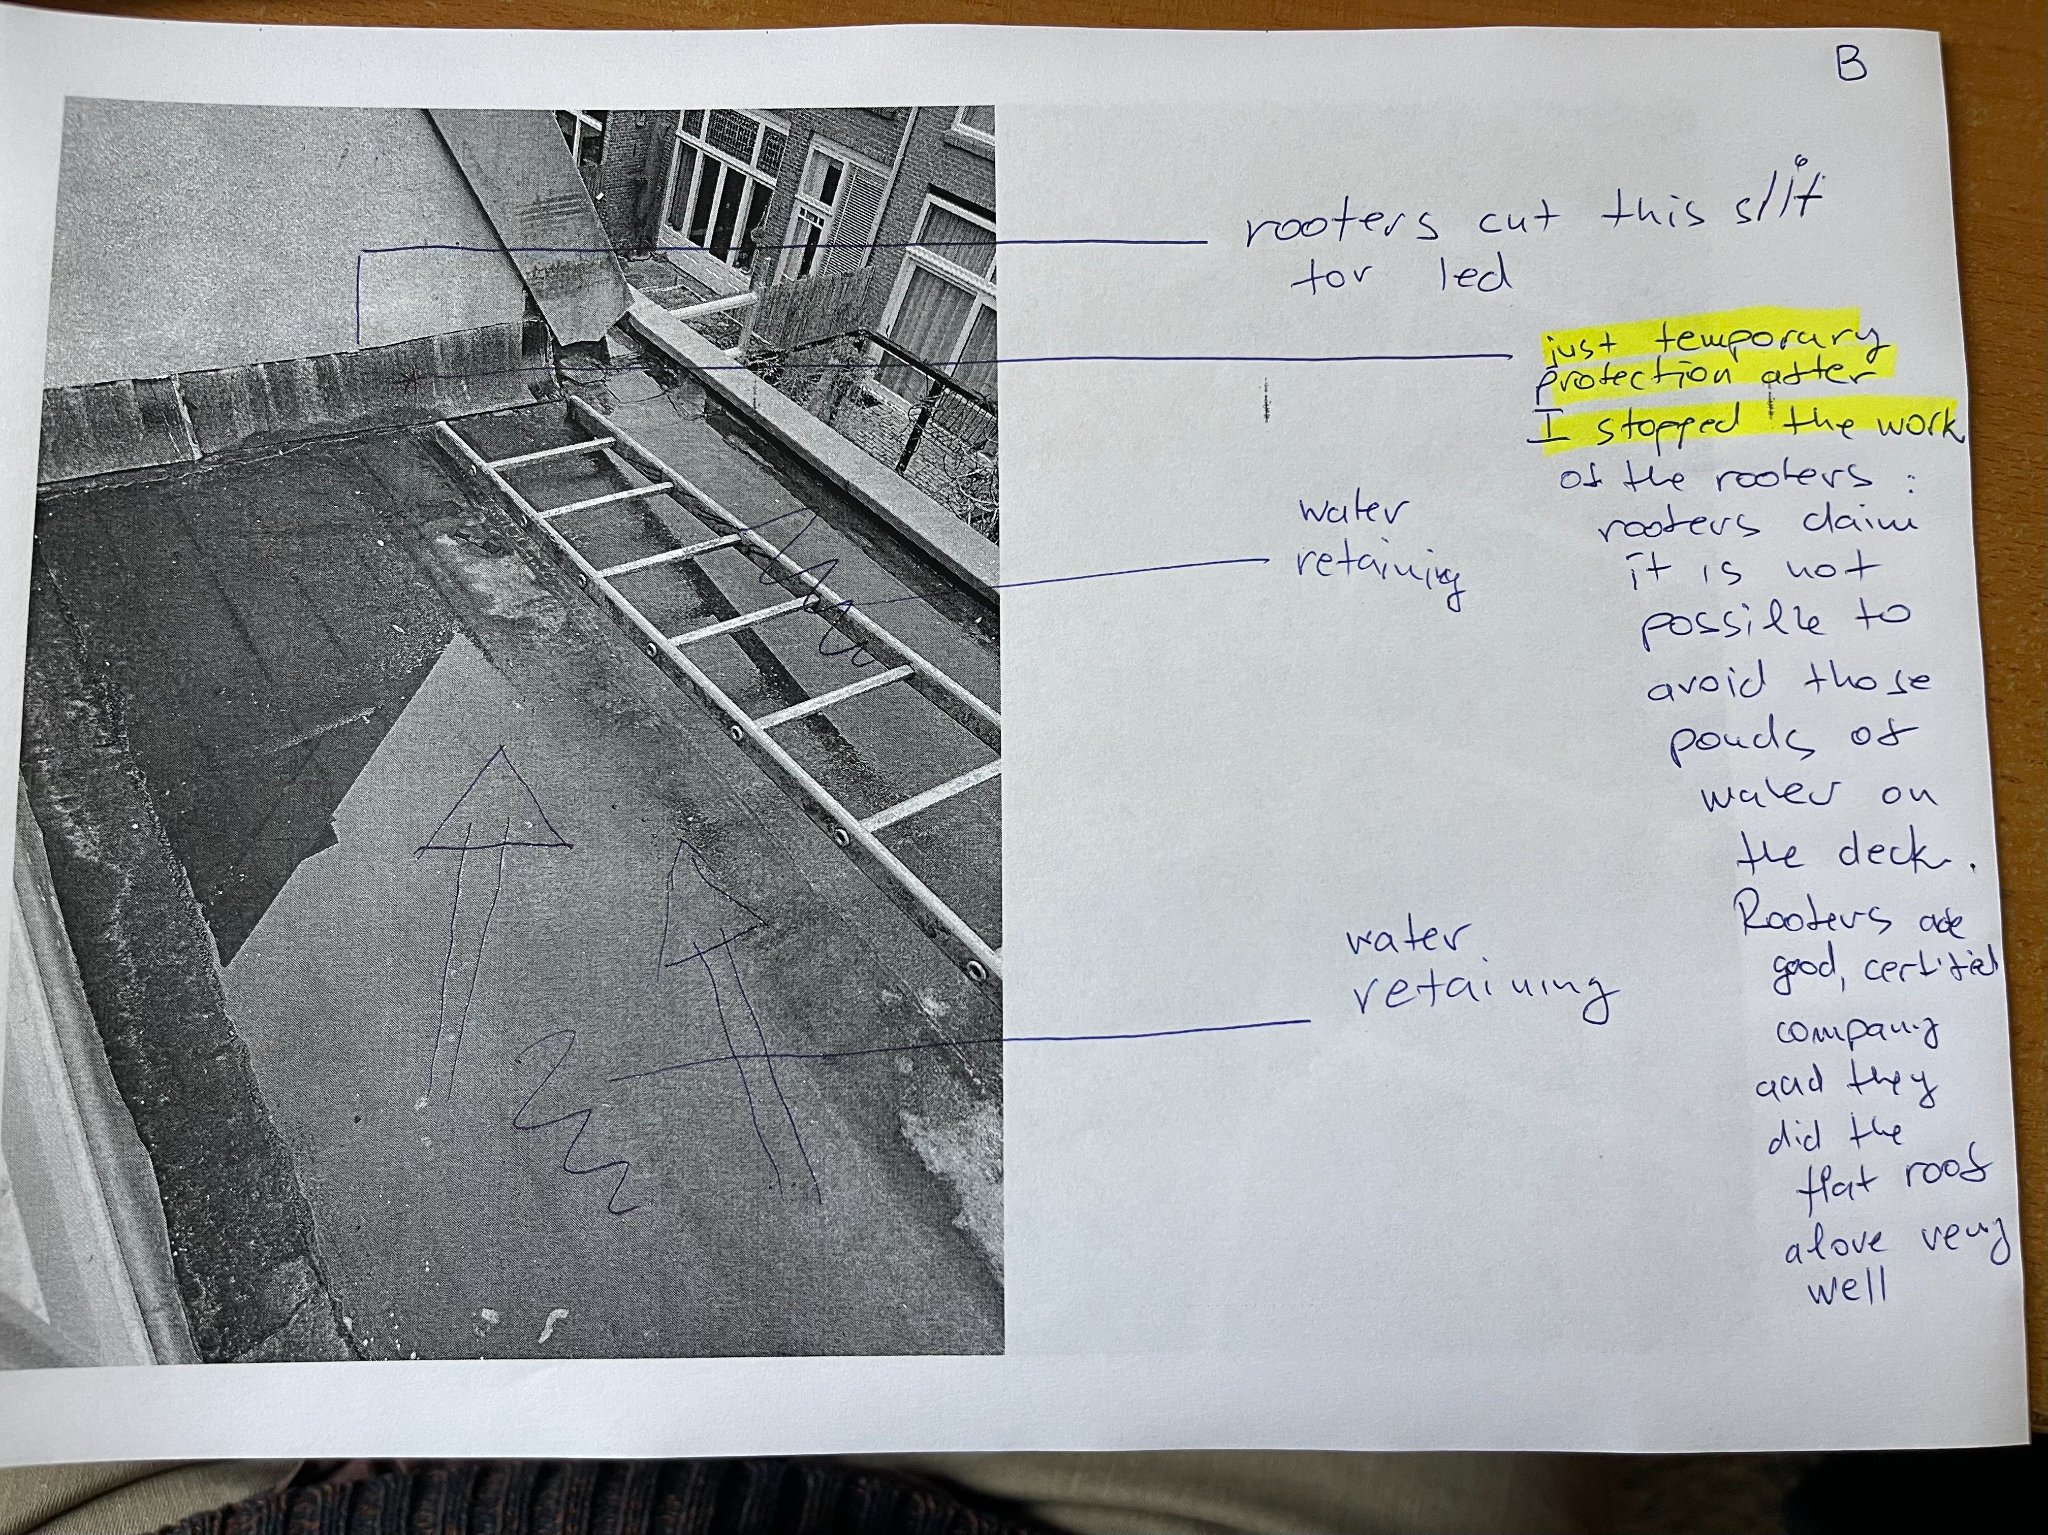 B
roofers cut this slit
for led
just temporary
protection after
I stopped the work
of the roofers :
roofers claim
it is not
possible to
avoid those
ponds of
water on
the deck.
Roofers are
good, certified
company
and they
did the
flat roof
above very
well
water
retaining
water
retaining